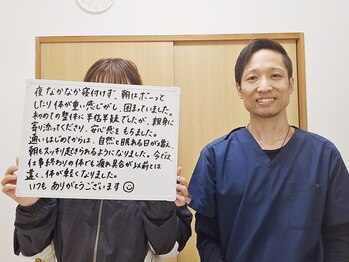 夜なかなか寝付けず、朝はボーっと
したり体が重い感じがし、困っていました。
初めての整体に半信半疑でしたが、親身に
寄り添ってくださり、安心感をもちました。
通いはじめてからは、自然と眠れる日が増え、
朝もスッキリ起きられるようになりました。今では、
仕事終わりの体でも疲れ具合が以前とは
違く、体が軽くなりました。
いつもありがとうございます